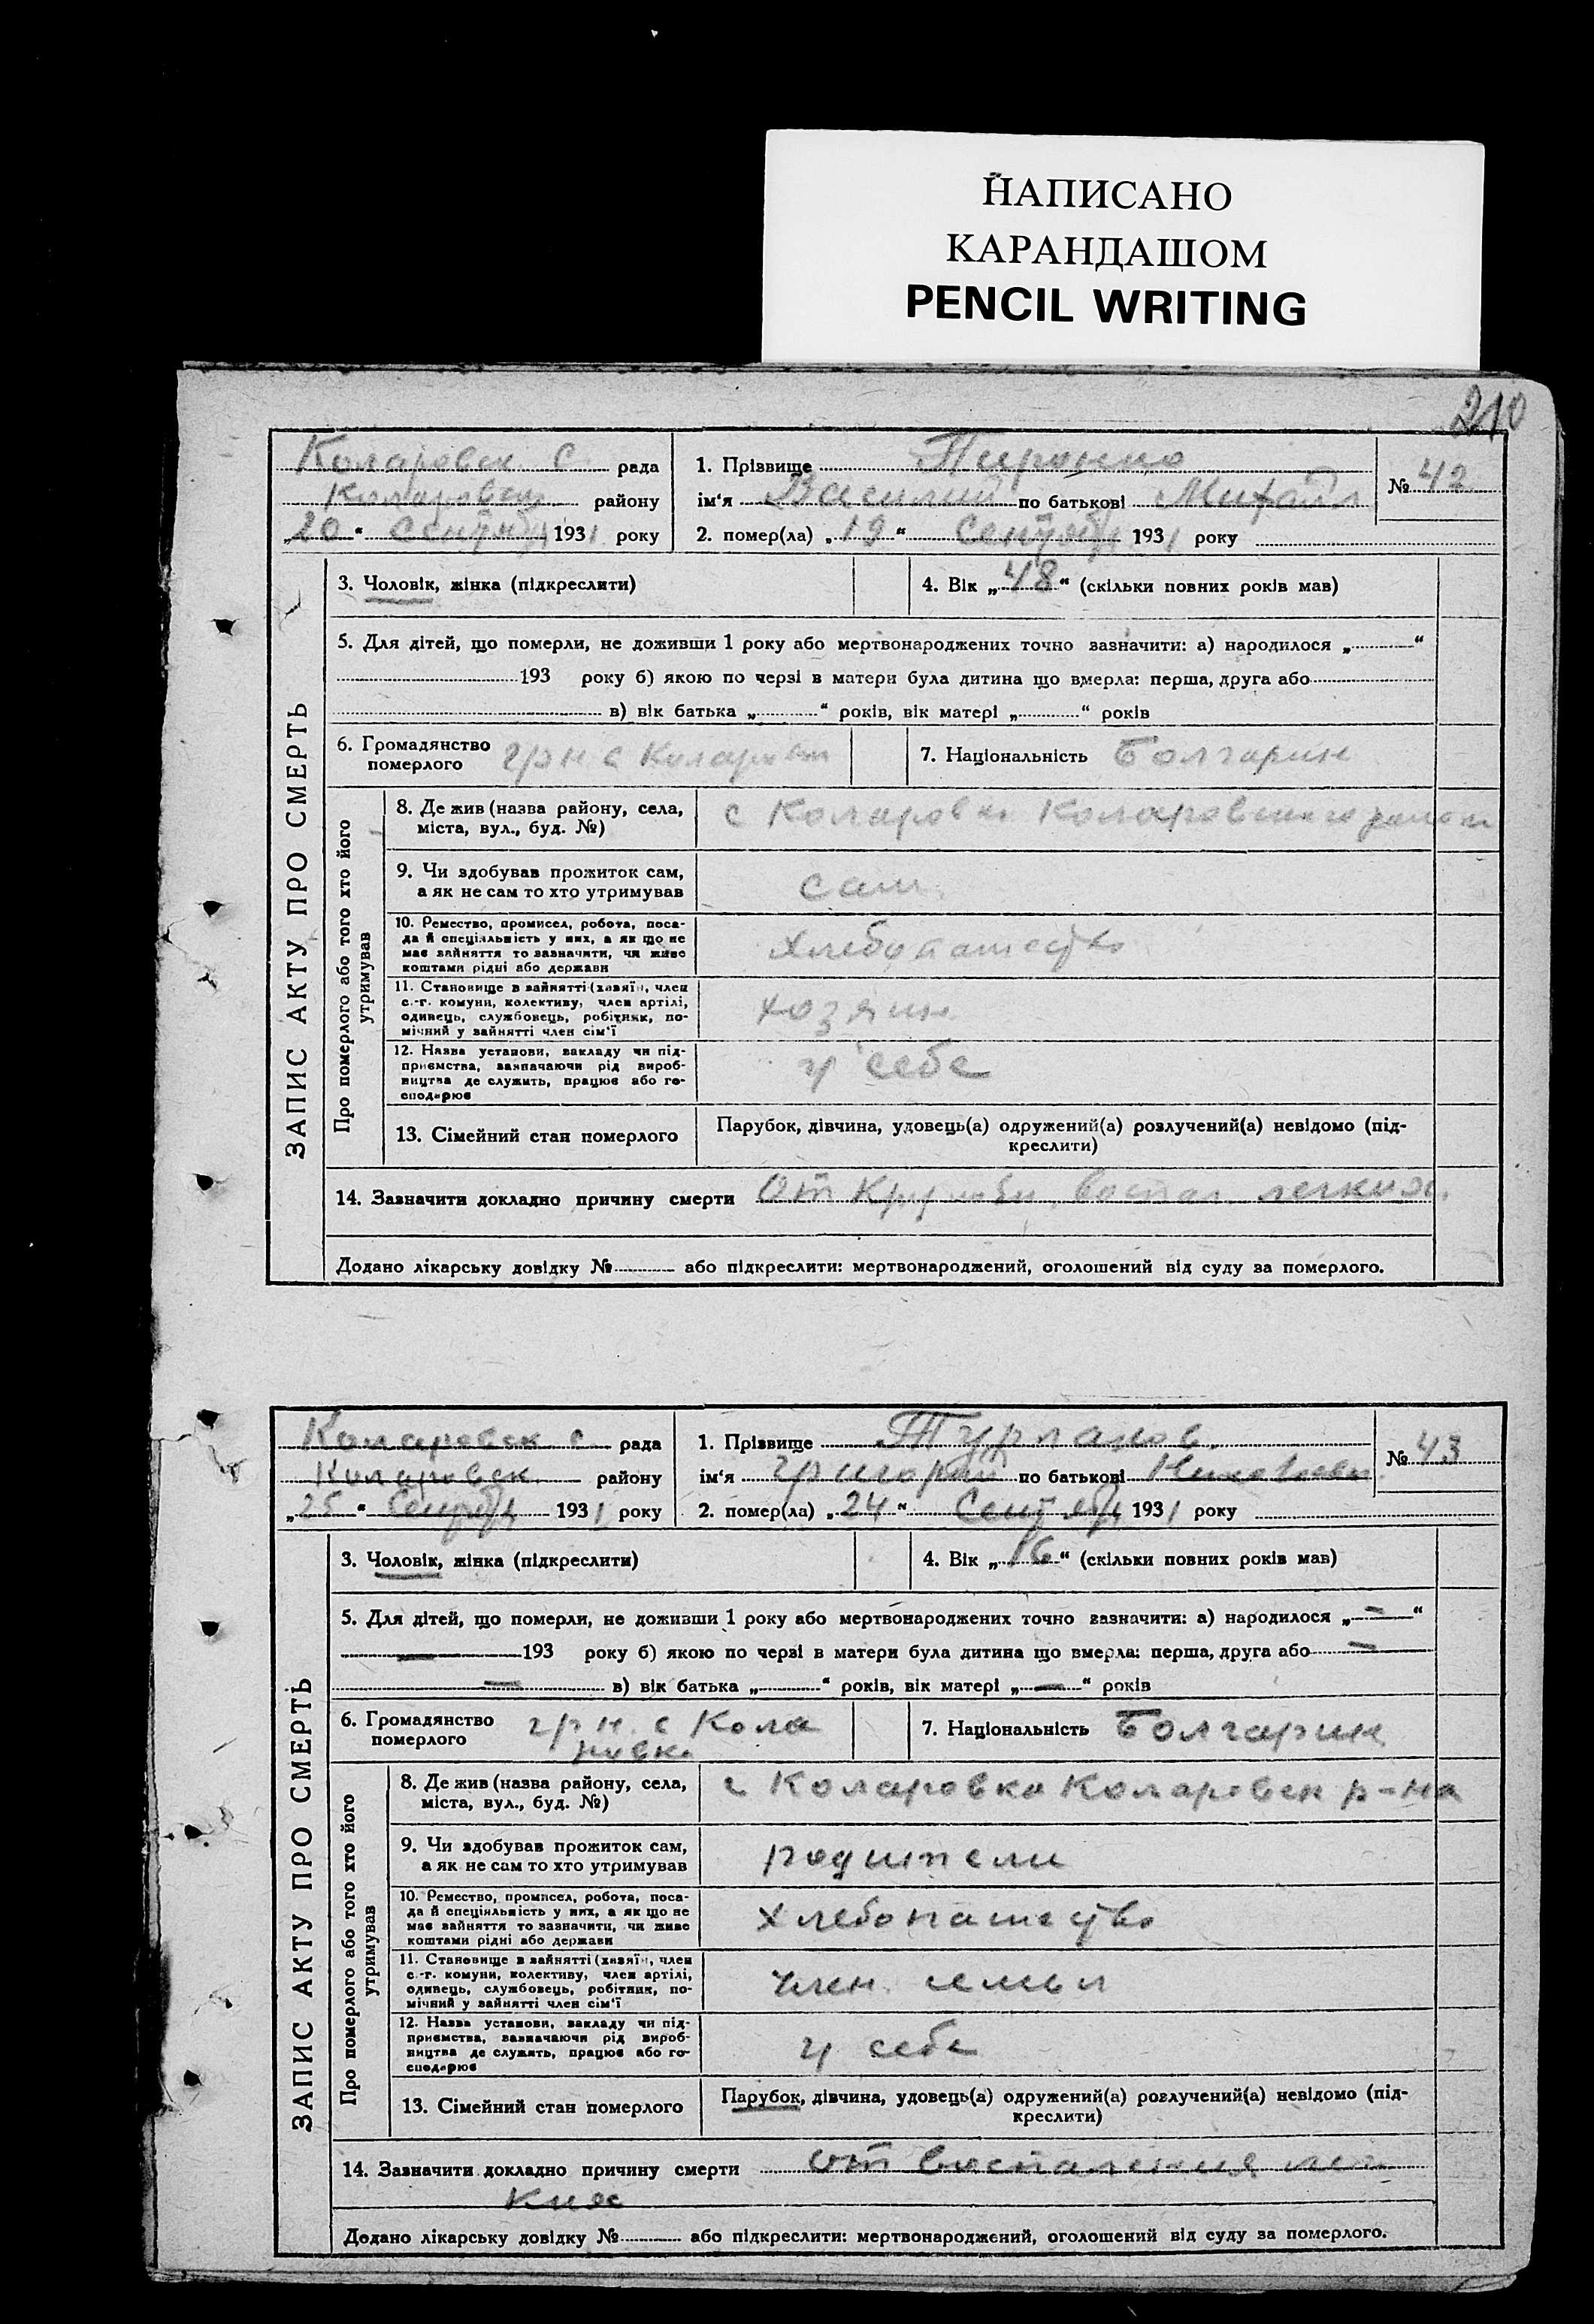 НАПИСАНО
КАРАНДАШОМ
PENCIL WRITING
210
Коларовск с. рада
Коларовск району
„20“ Сентябр 1931 року
1. Прізвище
№ 42
ім‘я Василий по батькові Михайл
2. помер(ла) „19“ Сентябр 1931 року
ЗАПИС АКТУ ПРО СМЕРТЬ
3. Чоловік, жінка (підкреслити)
4. Вік „48“ (скільки повних років мав)
5. Для дітей, що померли, не доживши 1 року або мертвонароджених точно зазначити: а) народилося „ “
193 року б) якою по черзі в матери була дитина що вмерла: перша, друга або
в) вік батька „ “ років, вік матері „ “ років
6. Громадянство
померлого
гр-н с Коларовки
7. Національність Болгарин
Про померлого або того хто його
утримував
8. Де жив (назва району, села,
міста, вул., буд. №)
с Коларовки Коларовского района
9. Чи здобував прожиток сам,
а як не сам то хто утримував
сам
10. Ремество, промисел, робота, поса-
да й спеціяльність у них, а як що не
має зайняття то зазначити, чи живе
коштами рідні або держави
Хлебопашество
11. Становище в зайнятті (хазяїн, член
с.-г. комуни, колективу, член артілі,
одинець, службовець, робітник, по-
мічний у зайнятті член сім‘ї
хозяин
12. Назва установи, закладу чи під-
приємства, зазначаючи рід вироб-
ництва де служить, працює або го-
сподарює
у себе
13. Сімейний стан померлого
Парубок, дівчина, удовець(а) одружений(а) розлучений(а) невідомо (під-
креслити)
14. Зазначити докладно причину смерти От воспал легких.
Додано лікарську довідку № або підкреслити: мертвонароджений, оголошений від суду за померлого.
Коларовск с. рада
Коларовск району
„25“ Сентябр 1931 року
1. Прізвище Турланов.
№ 43
ім‘я Григорий по батькові Николаев
2. помер(ла) „24“ Сентябр 1931 року
ЗАПИС АКТУ ПРО СМЕРТЬ
3. Чоловік, жінка (підкреслити)
4. Вік „16“ (скільки повних років мав)
5. Для дітей, що померли, не доживши 1 року або мертвонароджених точно зазначити: а) народилося „—“
— 193 року б) якою по черзі в матери була дитина що вмерла: перша, друга або —
— в) вік батька „ “ років, вік матері „—“ років
6. Громадянство
померлого
гр-н. с Кола
ровка
7. Національність Болгарин
Про померлого або того хто його
утримував
8. Де жив (назва району, села,
міста, вул., буд. №)
с Коларовка Коларовск р-на
9. Чи здобував прожиток сам,
а як не сам то хто утримував
родители
10. Ремество, промисел, робота, поса-
да й спеціяльність у них, а як що не
має зайняття то зазначити, чи живе
коштами рідні або держави
Хлебопашество
11. Становище в зайнятті (хазяїн, член
с.-г. комуни, колективу, член артілі,
одинець, службовець, робітник, по-
мічний у зайнятті член сім‘ї
член семьи
12. Назва установи, закладу чи під-
приємства, зазначаючи рід вироб-
ництва де служить, працює або го-
сподарює
у себе
13. Сімейний стан померлого
Парубок, дівчина, удовець(а) одружений(а) розлучений(а) невідомо (під-
креслити)
14. Зазначити докладно причину смерти от воспаления лег
ких
Додано лікарську довідку № або підкреслити: мертвонароджений, оголошений від суду за померлого.